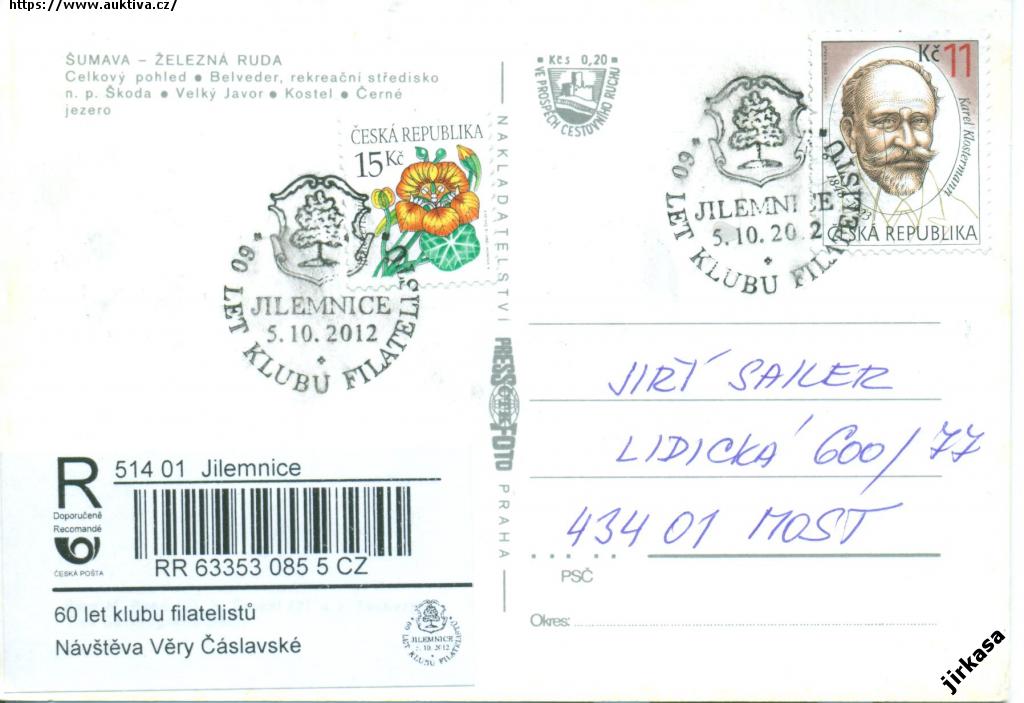 https://www.auktiva.cz/
ŠUMAVA – ŽELEZNÁ RUDA
Celkový pohled ● Belveder, rekreační středisko
n. p. Škoda ● Velký Javor ● Kostel ● Černé
jezero
Kčs 0,20
VE PROSPĚCH CESTOVNÍHO RUCHU
Kč 11
Karel Klostermann
ČESKÁ REPUBLIKA
60 LET KLUBU FILATELISTŮ
JILEMNICE
5.10.20 2
ČESKÁ REPUBLIKA
15 Kč
60 LET KLUBU FILATELISTŮ
JILEMNICE
5.10.2012
NAKLADATELSTVÍ
PRESSFOTO
PRAHA
JIŘÍ SAILER
LIDICKÁ 600/77
434 01 MOST
PSČ
Okres:
R
Doporučeně
Recomandé
ČESKÁ POŠTA
514 01 Jilemnice
RR 63353 085 5 CZ
60 let klubu filatelistů
Návštěva Věry Čáslavské
60 LET KLUBU FILATELISTŮ
JILEMNICE
5.10.2012
jirkasa